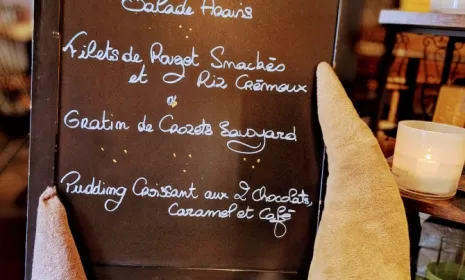 Salade Hawis
Filets de Rouget Snackés
et Riz Crémeux
ou
Gratin de Crozets Savoyard
Pudding Croissant aux 2 Chocolats,
Caramel et Café